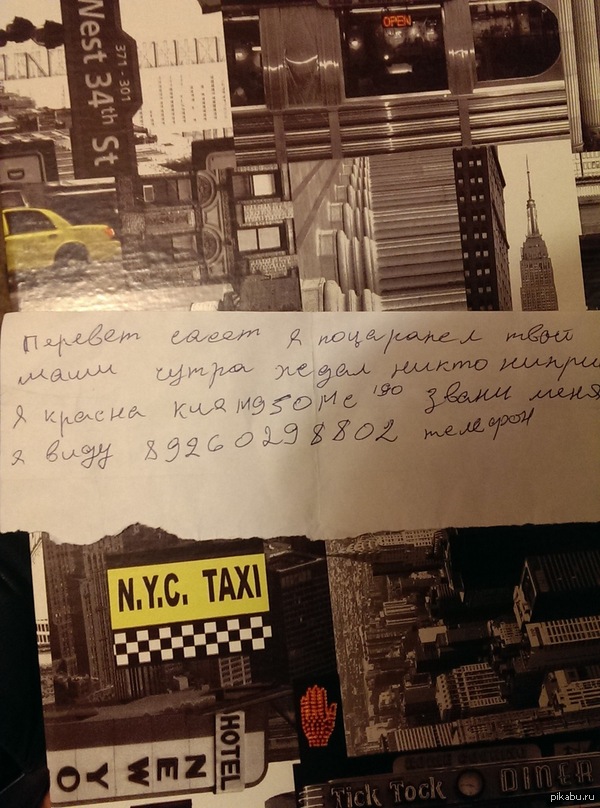 West 34th St
371-301
OPEN
Перевет сасет я поцарапел твой
маши чутра ждал никто нипри
я красна киа м950мс 190 звани меня
я виду 89260298802 телефон
N.Y.C. TAXI
HOTEL
NEW
YO
TICK TOCK DINER
pikabu.ru